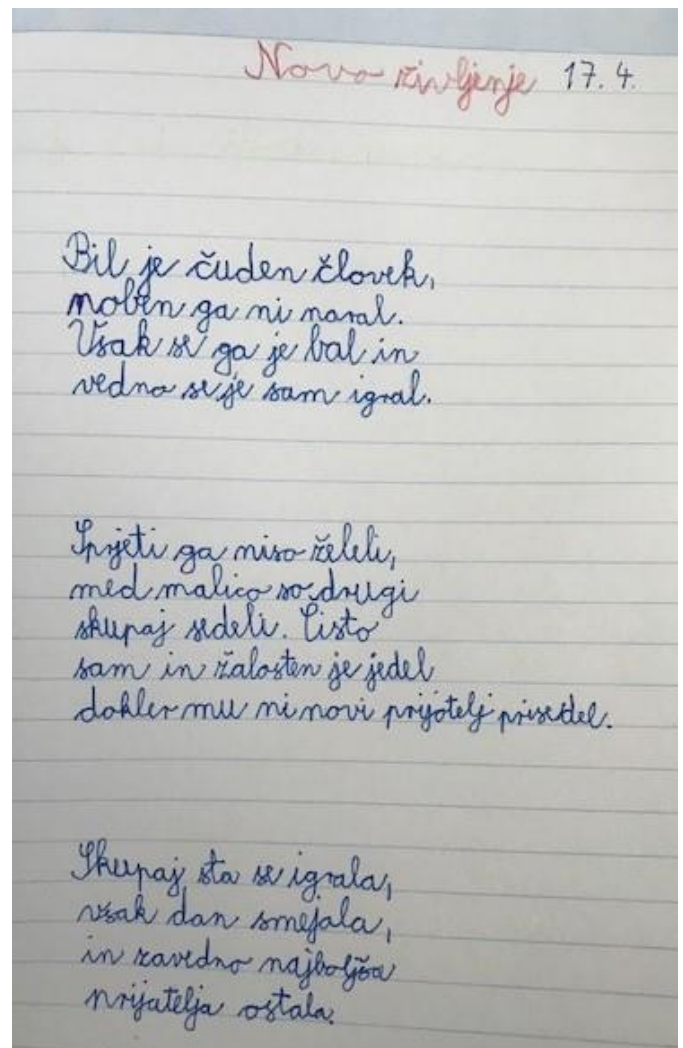 Novo življenje 17. 4.
Bil je čuden človek,
noben ga ni maral.
Vsak se ga je bal in
vedno se je sam igral.
Sprjeti ga niso želeli,
med malico so drugi
skupaj sedeli. Čisto
sam in žalosten je jedel
dokler mu ni novi prijatelj prisedel.
Skupaj sta se igrala,
vsak dan smejala,
in zavedno najboljša
prijatelja ostala.